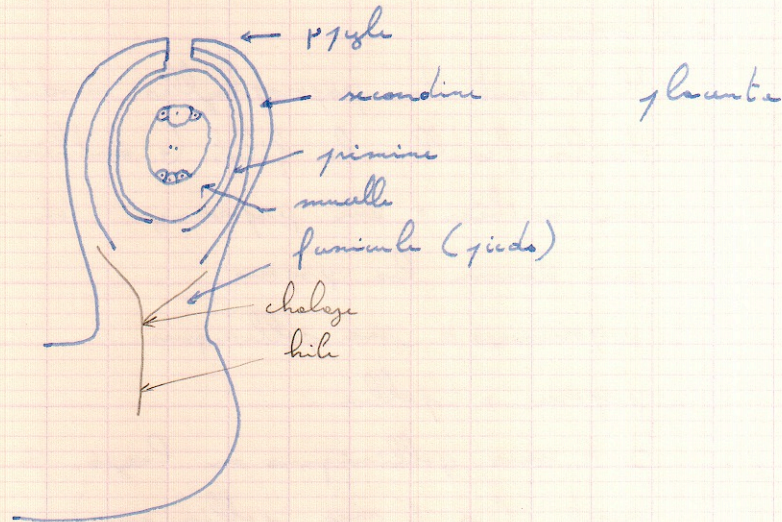 pyle
secondine placenta
primine
nucelle
funicule (pieds)
chalaze
hile